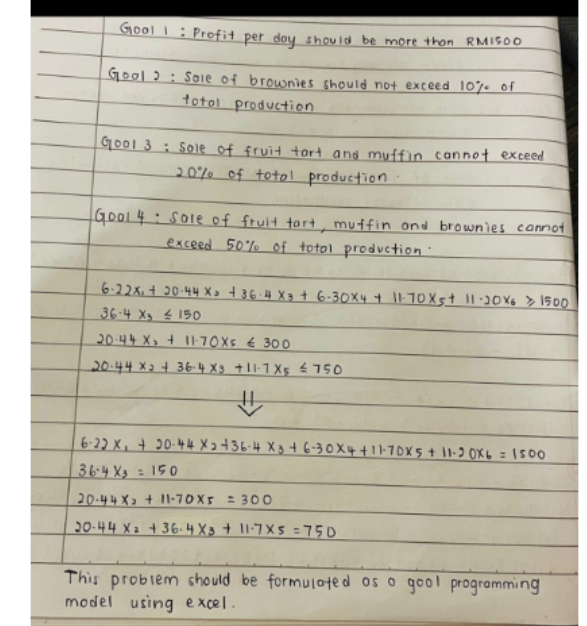 Goal 1 : Profit per day should be more than RM1500
Goal 2 : Sale of brownies should not exceed 10% of
total production
Goal 3 : Sale of fruit tart and muffin cannot exceed
20% of total production.
Goal 4 : Sale of fruit tart, muffin and brownies cannot
exceed 50% of total production.
6.22X₁ + 20.44 X₂ + 36.4 X₃ + 6.30X4 + 11.70X5 + 11.20X₆ ≥ 1500
36.4 X₃ ≤ 150
20.44 X₂ + 11.70X5 ≤ 300
20.44 X₂ + 36.4 X₃ + 11.7 X₅ ≤ 750
⇓
6.22 X₁ + 20.44 X₂ + 36.4 X₃ + 6.30X4 + 11.70X5 + 11.20X₆ = 1500
36.4 X₃ = 150
20.44 X₂ + 11.70X5 = 300
20.44 X₂ + 36.4 X₃ + 11.7 X5 = 750
This problem should be formulated as a goal programming
model using excel.